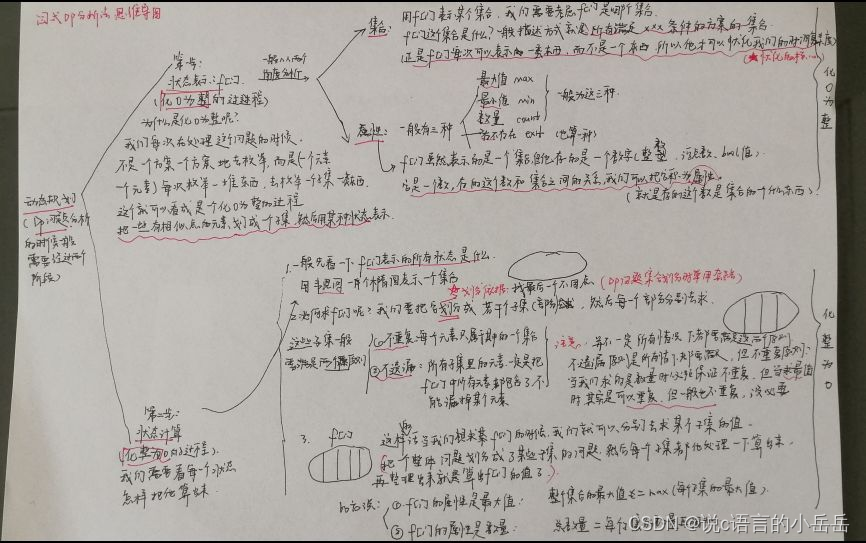 闫式DP分析法思维导图
第一步:
状态表示:f[i]
(化0为整的过程)
为什么是化0为整呢?
我们每次在处理这个问题的时候.
不是一个方案一个方案地去枚举,而是(一个元素
一个元素)每次枚举一堆东西,去枚举一个子集一类东西.
这个就可以看成是一个化0为整的过程
把一些有相似点的元素,划成一个子集,然后用某种状态表示.
一般从两个
角度分析
集合:
用f[i]表示某个集合,我们需要考虑f[i]是哪个集合.
f[i]这个集合是什么?一般描述方式就是所有满足xxx条件的方案的集合
正是f[i]每次可以表示的一类东西,而不是一个东西,所以他才可以优化我们的时间复杂度
属性:
一般有三种
最大值 max
最小值 min
数量 count
一般为这三种.
f[i]虽然表示的是一个集合但他存的是一个数字
它是一个数,存的这个数和集合之间的关系,我们可以把它称为属性.
(就是存的这个数是集合的一个什么东西)
化0为整
动态规划
(DP问题在分析
的时候一般
需要经过两个
阶段)
第二步:
状态计算
(化整为0的过程).
我们需要看每一个状态
怎样把他算出来.
1.一般先看一下f[i]表示的所有状态是什么.
用韦恩图一个椭圆表示一个集合
划分依据:找最后一个不同点
2.如何求f[i]呢?我们要把它划分成若干个子集(部分),然后每一个部分分别去求.
这些子集一般
要满足两个原则
①不重复:每个元素只属于其中的一个集合
②不遗漏:所有子集里的元素一定是把
f[i]中所有元素都包含了不
能漏掉某个元素
注意:并不一定所有情况下都要满足这两个原则
不遗漏原则是所有情况都需要满足,但不重复原则:
当我们求的是数量时必须保证不重复,但当求最值
时其实是可以重复,但一般也不重复,没必要
化整为0
3.
f[i]
这样话当我们想求某f[i]的时候,我们就可以分别去求某个子集的值.
(把一个整体问题划分成了某些子集的问题,然后每一个子集都他处理一下算出来.
再整理出来就是算出f[i]的值了.)
①f[i]的属性是最大值:
整个集合的最大值 = max(每个子集的最大值).
②f[i]的属性是数量:
总数量 = 每个
CSDN @说c语言的小岳岳